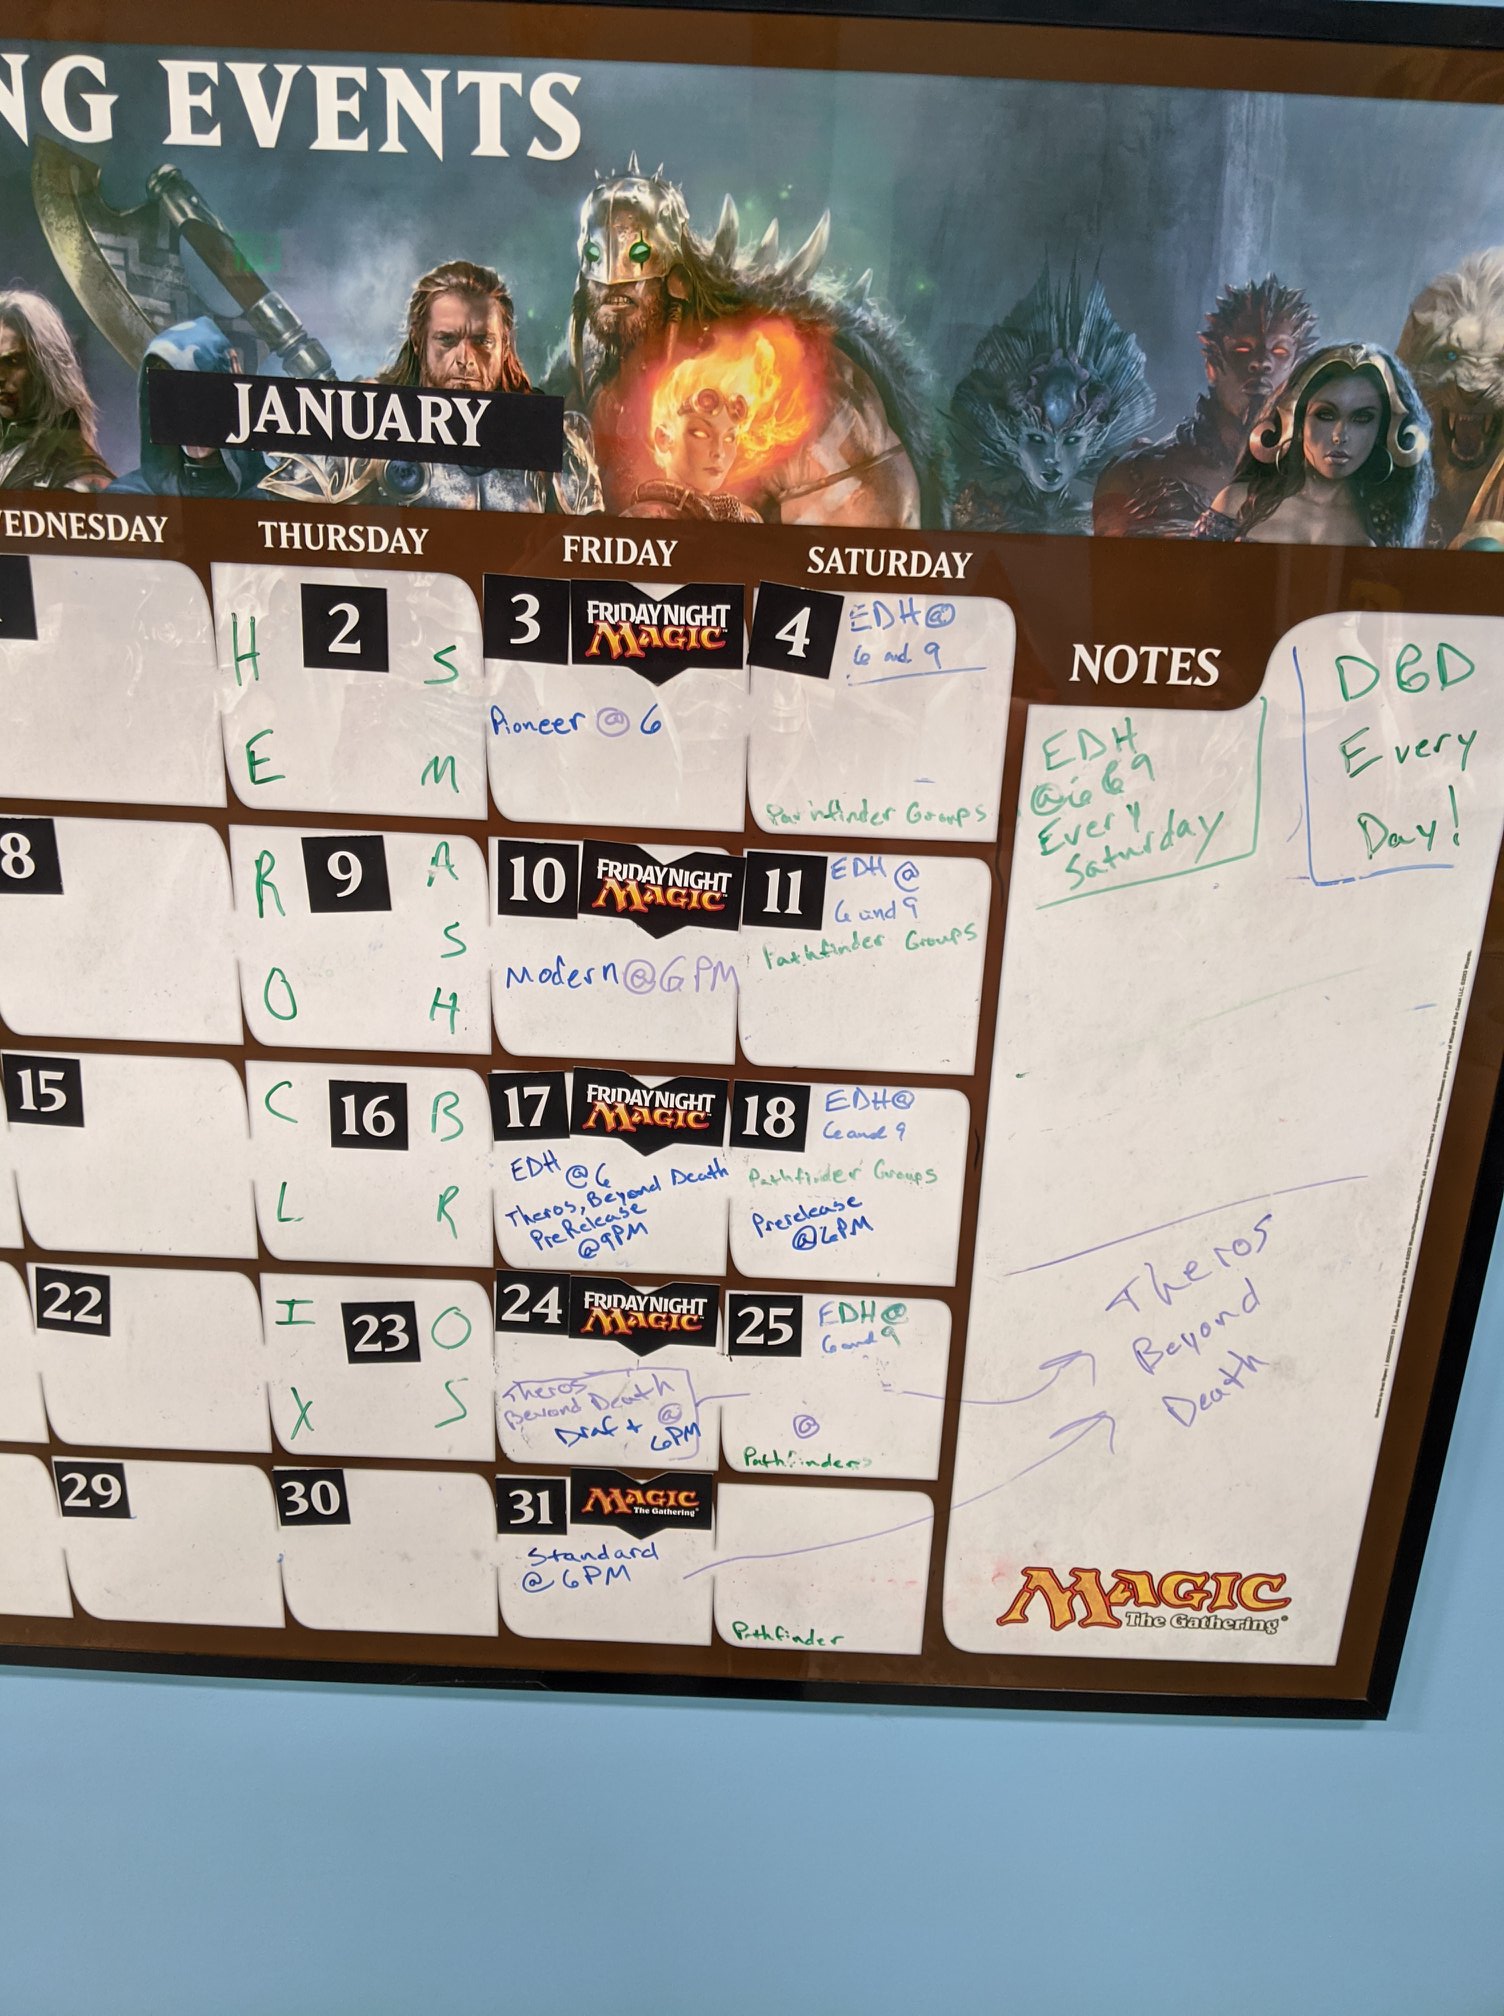 NG EVENTS
JANUARY
EDNESDAY
THURSDAY
FRIDAY
SATURDAY
NOTES
H
E
2
S
M
3
FRIDAY NIGHT
MAGIC
Pioneer @ 6
4
EDH @
6 and 9
Pathfinder Groups
8
R
O
9
A
S
H
10
FRIDAY NIGHT
MAGIC
Modern @ 6PM
11
EDH @
6 and 9
Pathfinder Groups
15
C
L
16
B
R
17
FRIDAY NIGHT
MAGIC
EDH @ 6
Theros, Beyond Death
PreRelease
@ 9PM
18
EDH @
6 and 9
Pathfinder Groups
Prerelease
@ 6PM
22
I
X
23
O
S
24
FRIDAY NIGHT
MAGIC
Theros
Beyond Death
Draft @
6PM
25
EDH @
6 and 9
@
Pathfinders
29
30
31
MAGIC
The Gathering®
Standard
@ 6PM
Pathfinder
EDH
@ 6 & 9
Every
Saturday
D&D
Every
Day!
Theros
Beyond
Death
MAGIC
The Gathering®